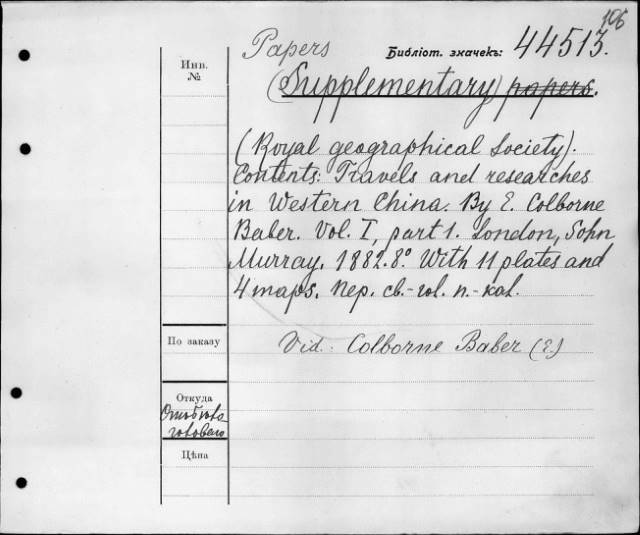 106
Papers Библіот. значекъ: 44513.
(Supplementary) papers.
Инв.
№
(Royal geographical Society).
Contents: Travels and researches
in Western China. By E. Colborne
Baber. Vol. I, part 1. London, John
Murray. 1882. 8° With 11 plates and
4 maps.
По заказу
Vid. Colborne Baber (E.)
Откуда
Цѣна